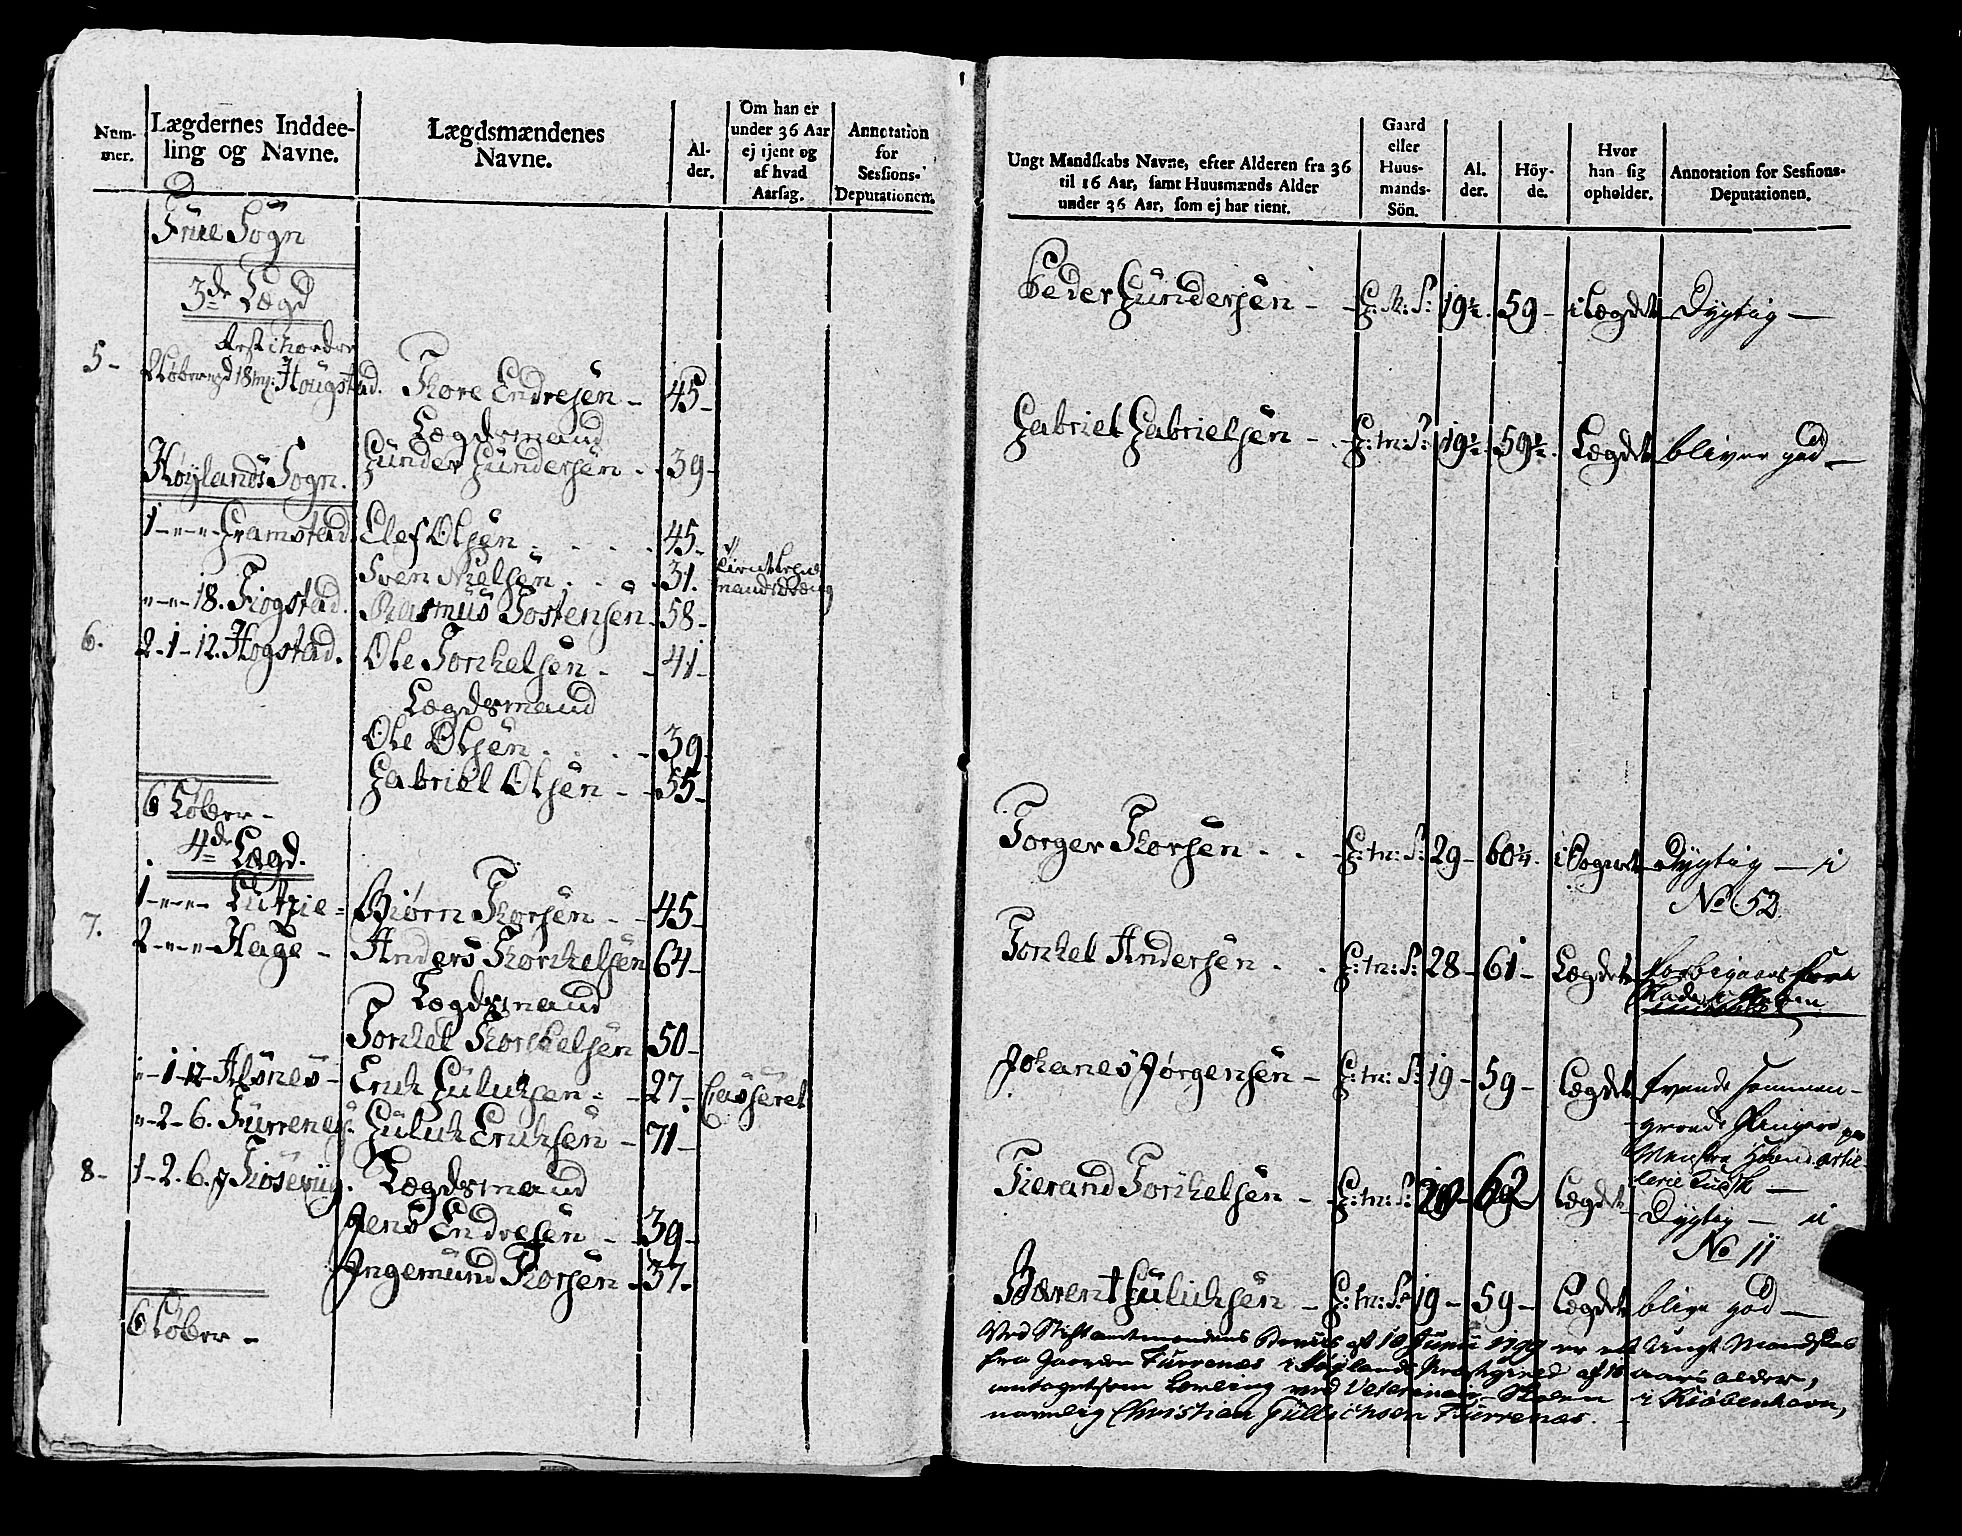 Num-
mer.
Lægdernes Inddee-
ling og Navne.
Lægdsmændenes
Navne.
Al-
der.
Om han er
under 36 Aar
ej tjent og
af hvad
Aarsag.
Annotation
for
Sessions-
Deputationen.
Frue Sogn
3de Lægd
5- Hougstad. Thore Endresen - 45-
Lægdsmand
Gunder Gundersen - 39-
Høylands Sogn.
1 - - - Gramstad. Elef Olsen 45-
Sven Nielsen 31.
- - - 18. Fiogstad. Rasmus Tostensen 58-
6. 2-1-12. Hogstad. Ole Torkelsen - 41-
Lægdsmand
Ole Olsen 39
Gabriel Olsen - 55-
6 Løber -
4de Lægd.
1 - - - Lutzie - Biørn Thorsen - 45-
7. 2 - - - Hage - Anders Thorkelsen 64-
Lægdsmand
Torkel Thorkelsen 50-
- 1-12- Alsnes - Erik Gulichsen - 27- Casseret
- 2-6. Furrenes. Gulich Erichsen - 71-
8- 1-2.6. Lægdsmand
Jens Endresen - 39-
Angemund Thorsen - 37-
6 Løber -
Ungt Mandskabs Navne, efter Alderen fra 36
til 16 Aar, samt Huusmænds Alder
under 36 Aar, som ej har tient.
Gaard
eller
Huus-
mands-
Sön.
Al.
der.
Höy-
de.
Hvor
han sig
opholder.
Annotation for Sessions-
Deputationen.
Peder Gundersen - G: M: S: 19½. 59- i Lægdet Dygtig -
Gabriel Gabrielsen - G: m: S: 19½. 59½. Lægdet bliver god -
Torger Thorsen - G: m: S: 29- 60¼. i Sognet Dygtig - i
No 52
Torkel Andersen - G: m: S: 28- 61- Lægdet Forbigaaes for
Johanes Jørgensen - G: m: S: 19- 59- Lægdet tvende sammen-
groede Fingre paa
Tierand Torkelsen - G: m: S: 62 Lægdet
Dygtig - i
No 11
Bærent Gulichsen - G: m: S: 19- 59- Lægdet blive god -
Ved Stiftamtmandens af 10 Junii 1799 er et Ungt Mandskab
fra Gaarden Furrenæs i Høylands Præstegield af 18 aars alder,
antaget som Lærling ved Veterinair Skolen i Kiøbenhavn,
navnlig Christian Gullichsen Furrenæs.